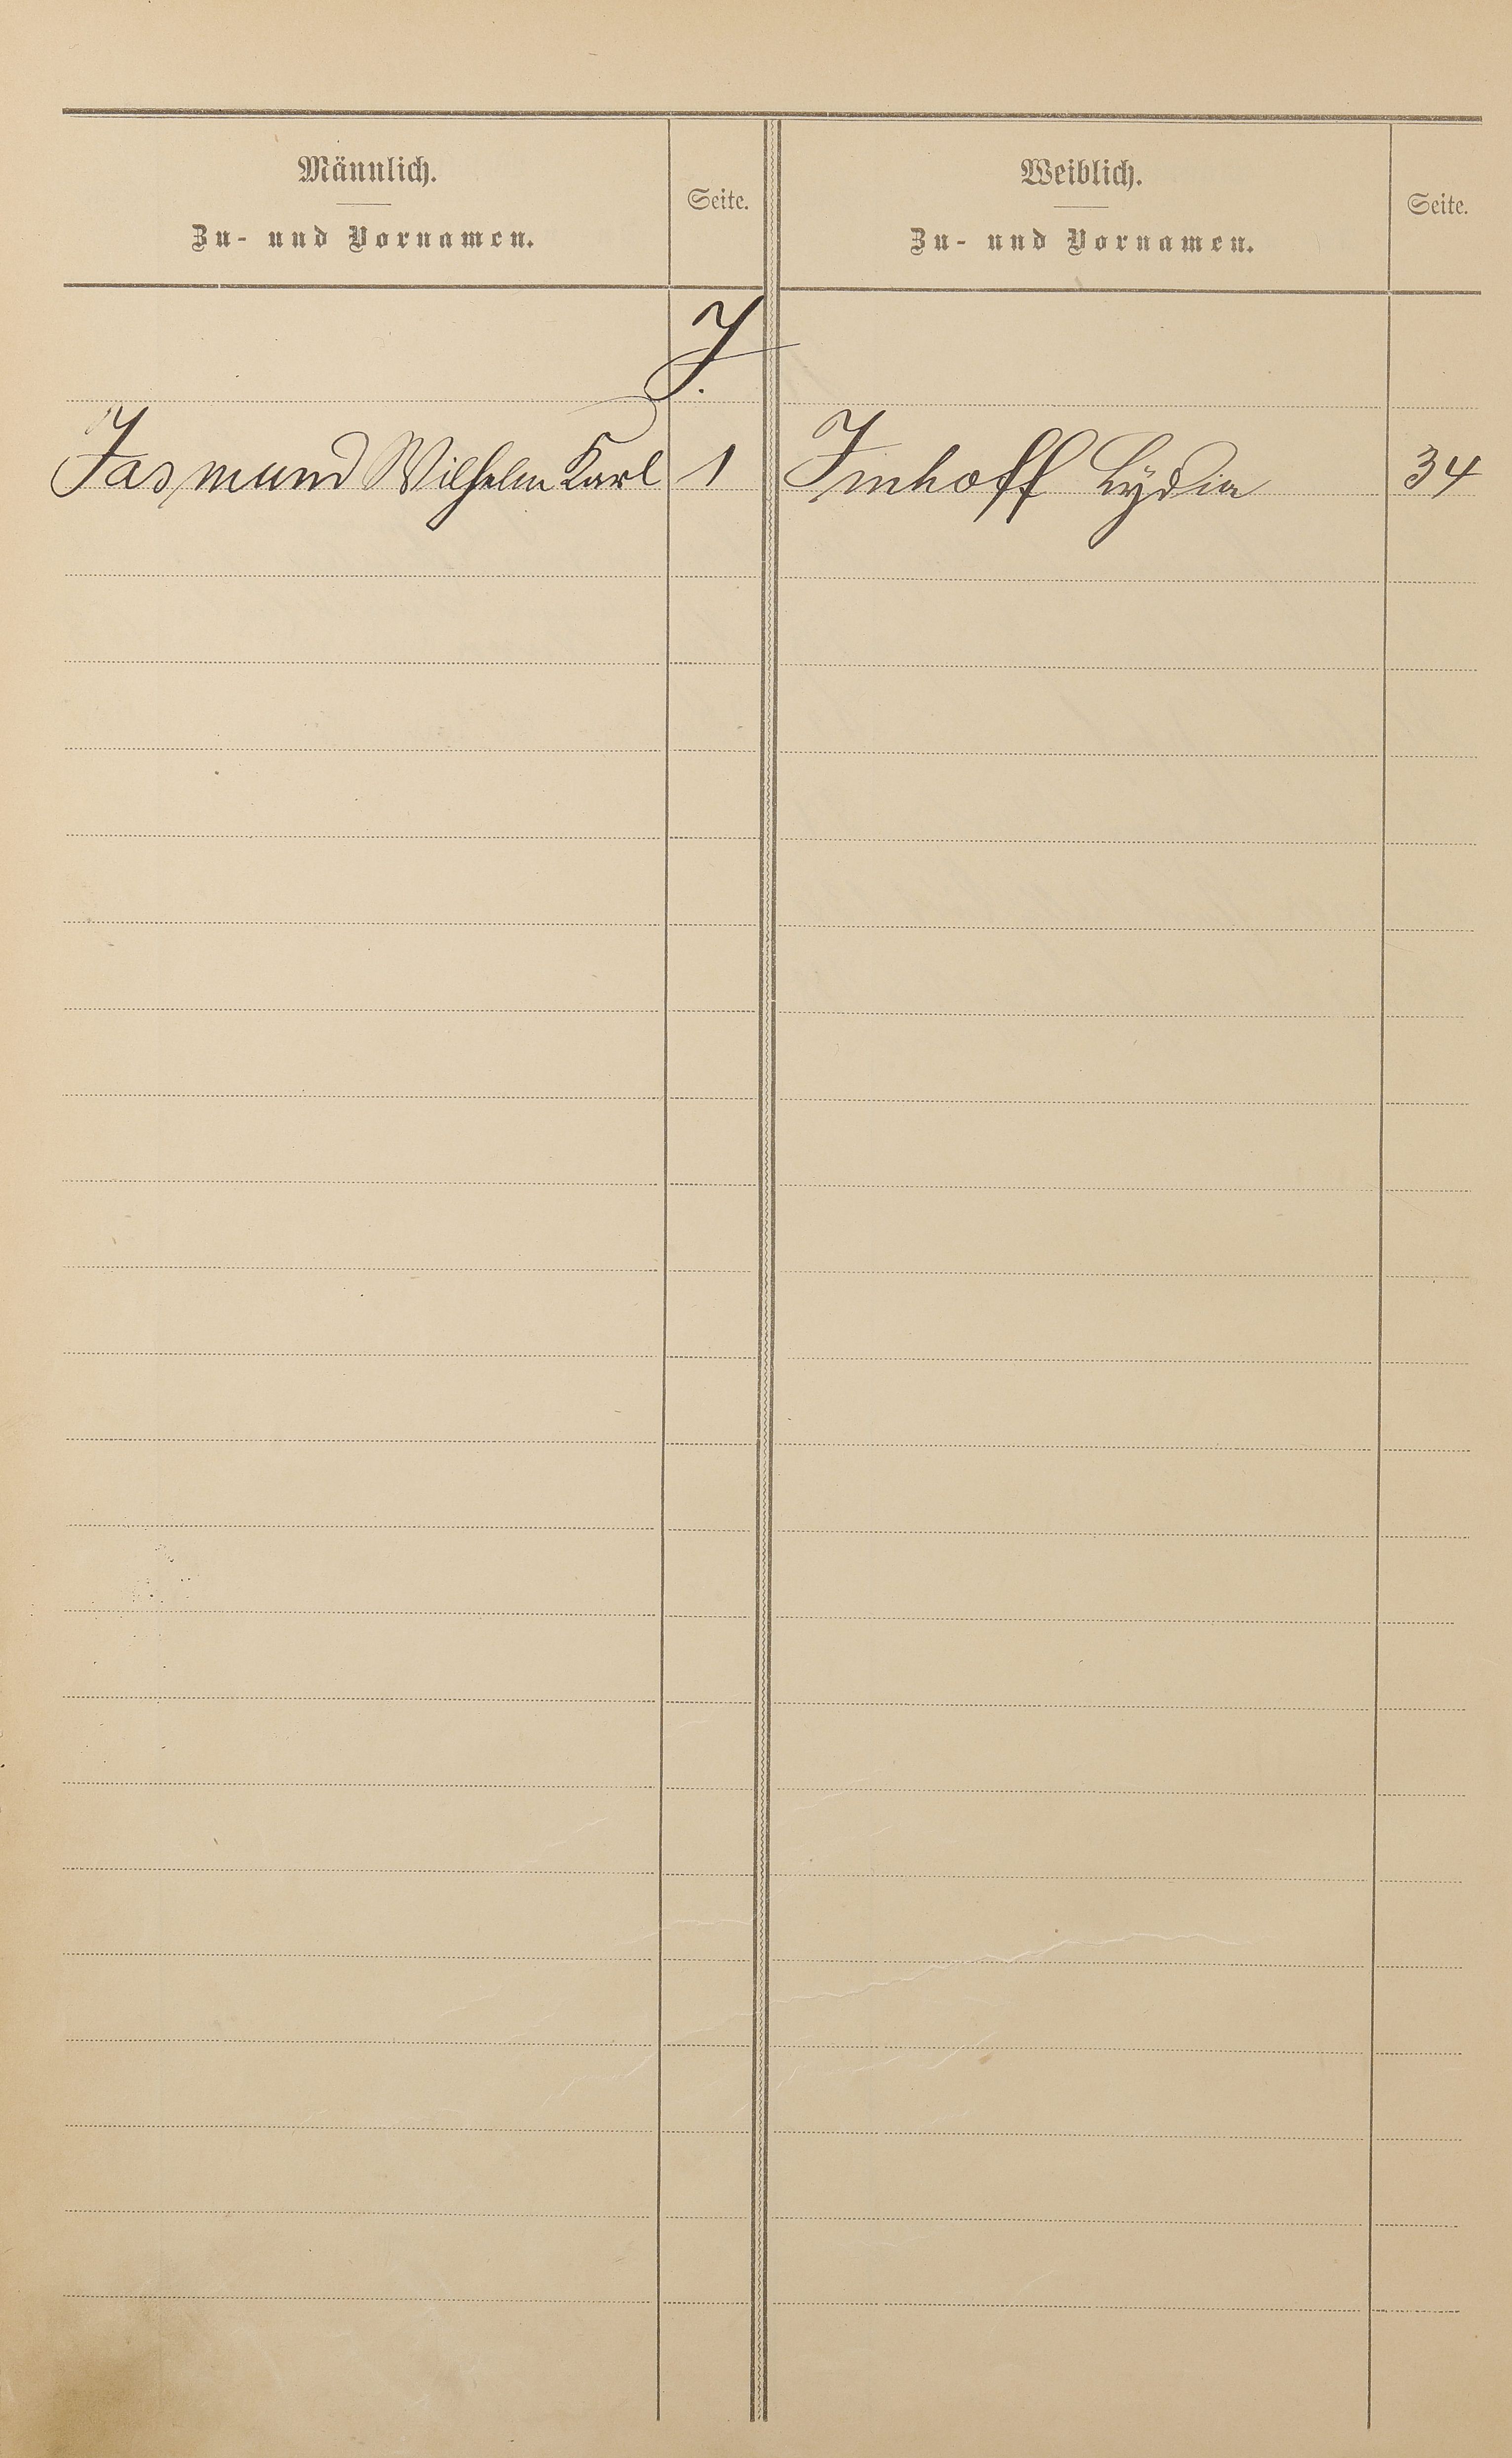 Männlich.
Zu- und Vornamen.
Seite.
Weiblich.
Zu- und Vornamen.
Seite.
J.
Jasmund Wilhelm Karl 1 Imhoff Lÿdia 34